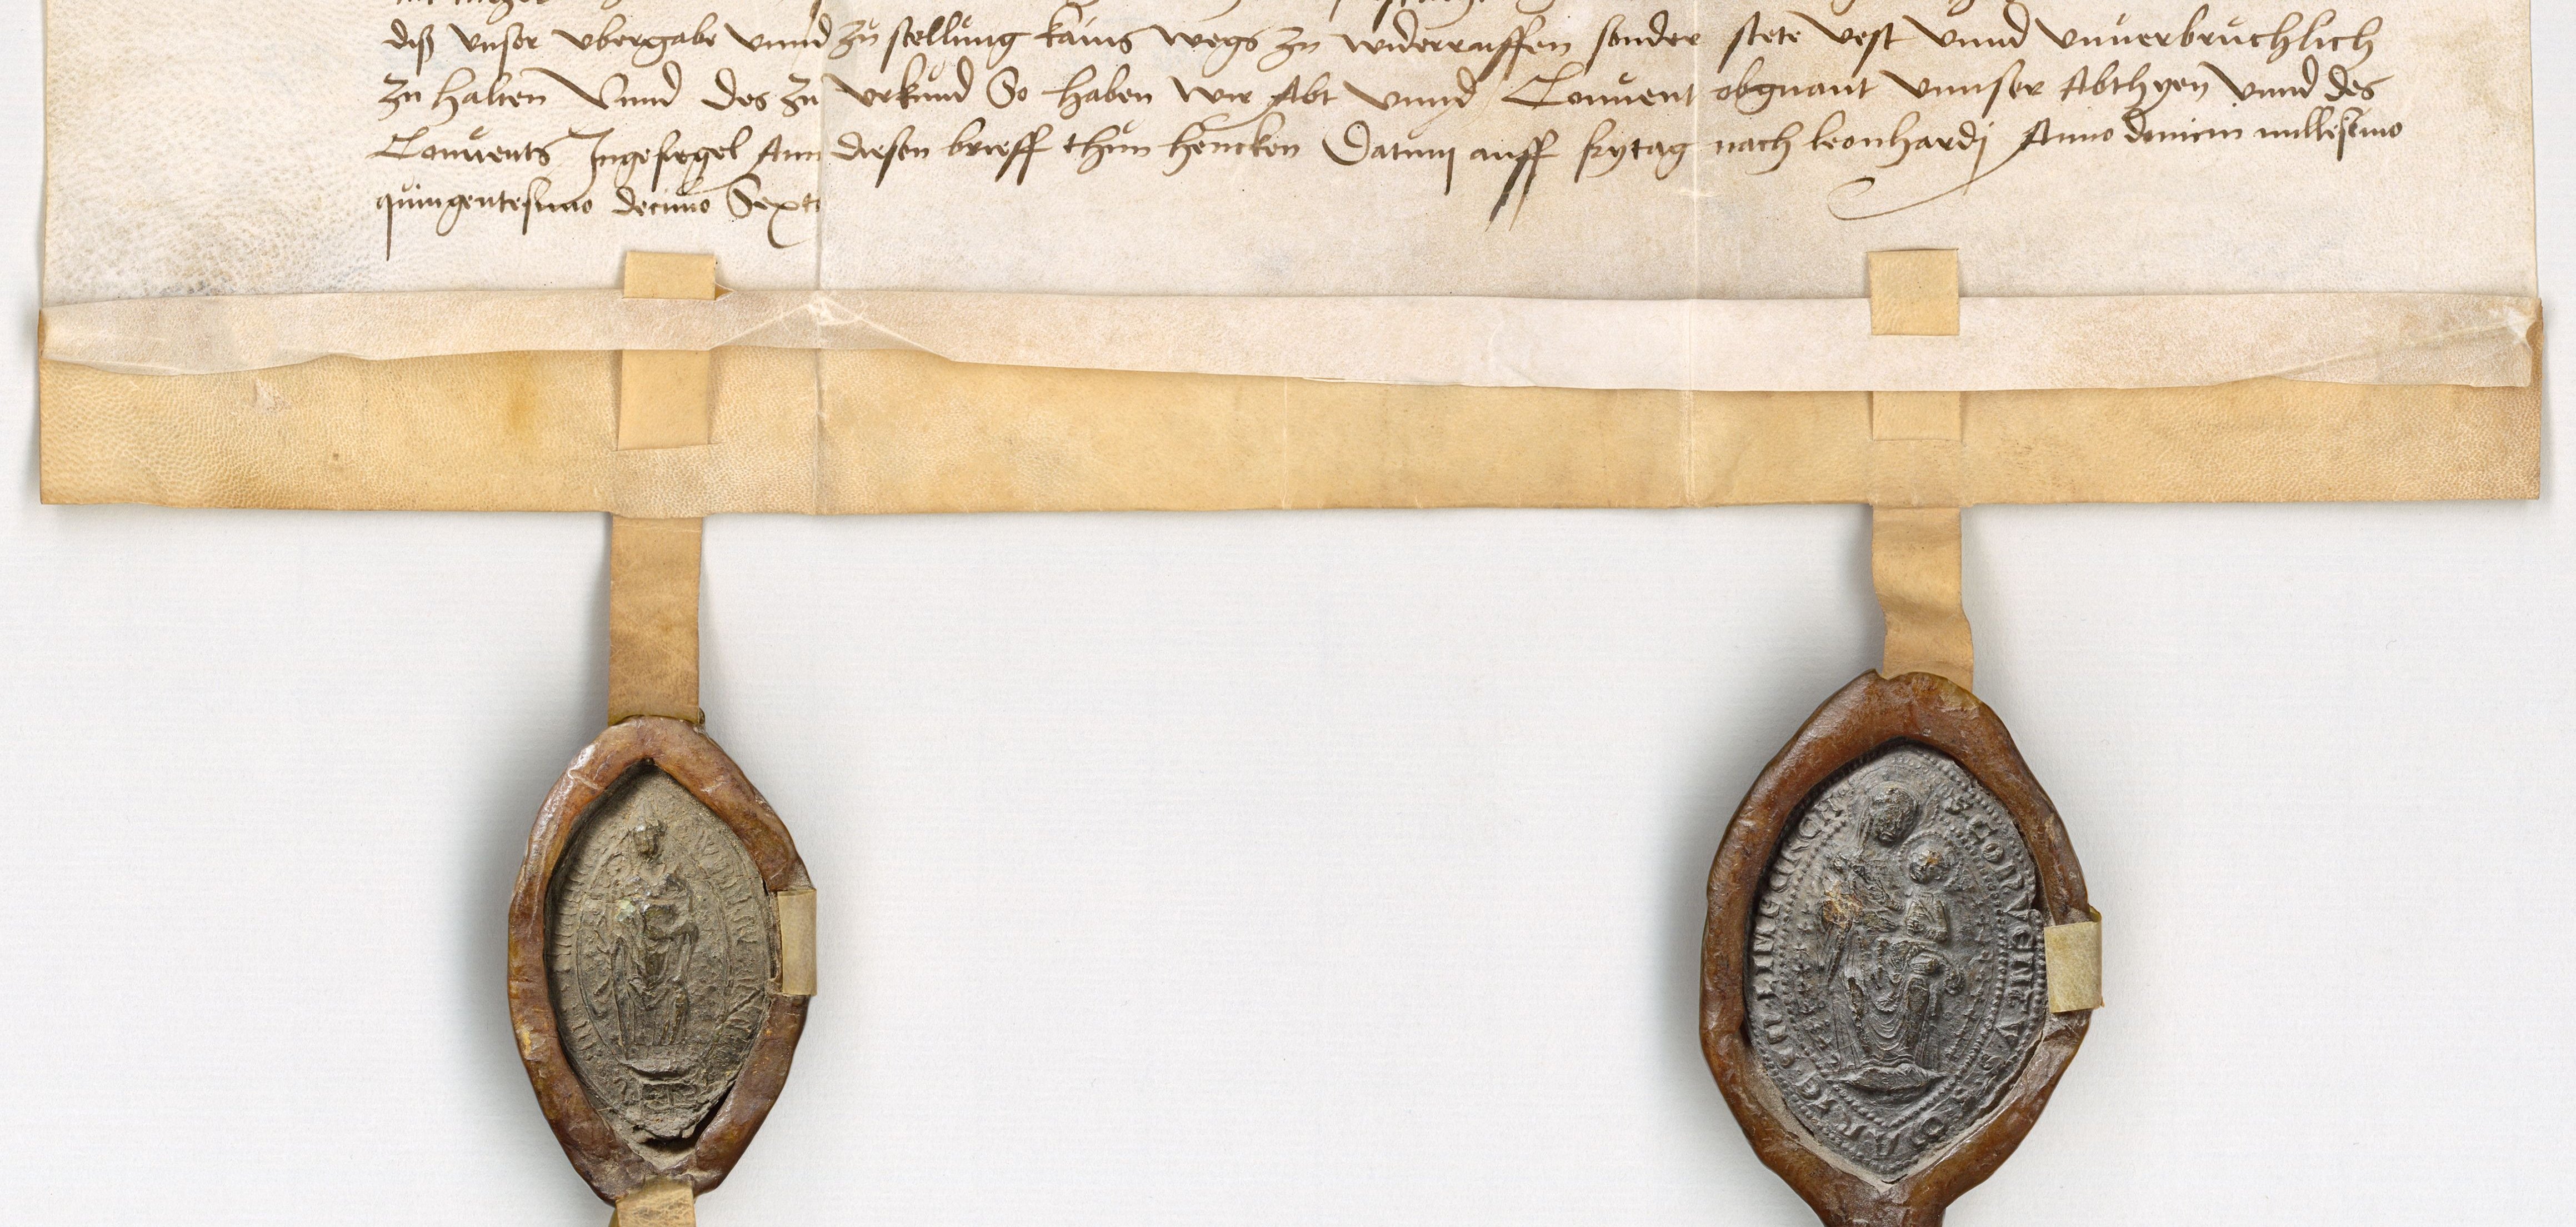 diß unser ubergabe unnd zů stellung kains wegs zu widerruffen sonder stete vest unnd unverbruchlich
zu halten Unnd des zu urkund So haben wir Abt unnd Convent obgnant unnser Abthyen unnd des
Convents Ingesiegel Ann diesen brieff thun hencken Datum auff frytag nach leonhardj Anno domini millesimo
quingentesimo decimo Sexto
S CONVENTVS